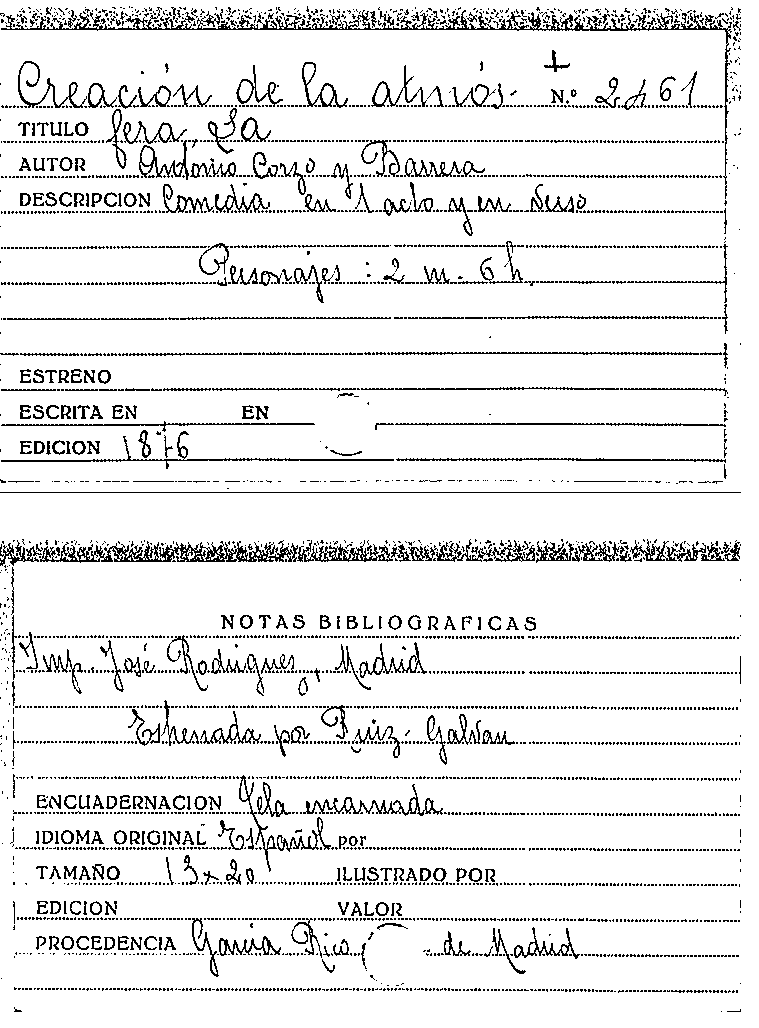 Creación de la atmós- N.º 2461
TITULO fera, La
AUTOR Antonio Corzo y Barrera
DESCRIPCION Comedia en 1 acto y en verso
Personajes : 2 m. 6 h.
ESTRENO
ESCRITA EN EN
EDICION 1876
NOTAS BIBLIOGRAFICAS
Imp. José Rodriguez, Madrid
Estrenada por Ruiz- Galvan
ENCUADERNACION Tela encarnada
IDIOMA ORIGINAL Español por
TAMAÑO 13 x 20 ILUSTRADO POR
EDICION VALOR
PROCEDENCIA Garcia Rico de Madrid